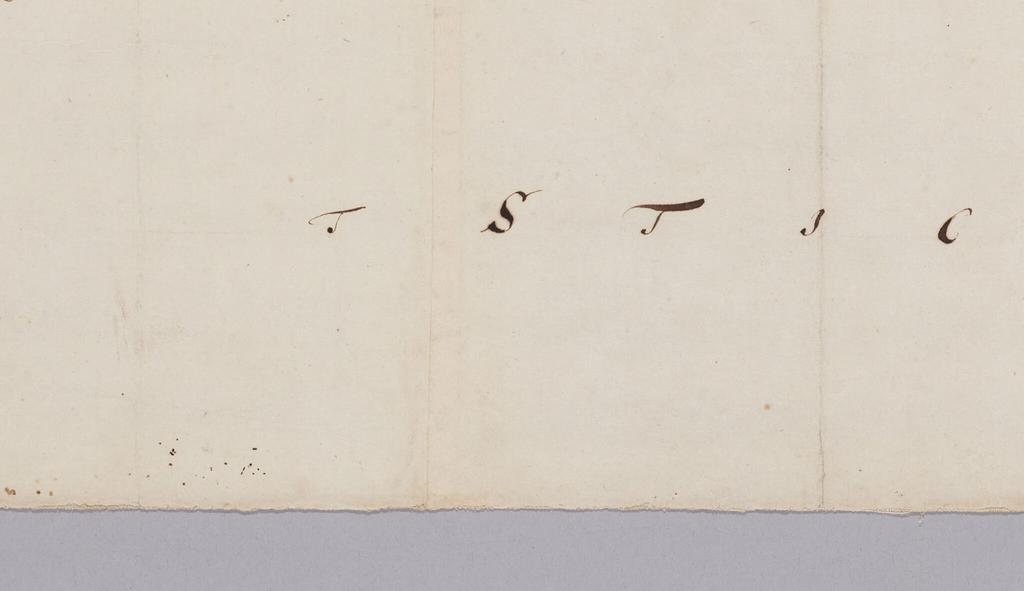 T S T I C